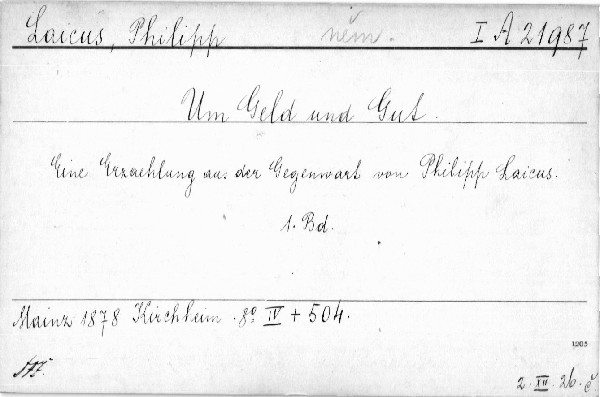 Laicus, Philipp něm. I A 21987
Um Geld und Gut.
Eine Erzaehlung aus der Gegenwart von Philipp Laicus.
1. Bd.
Mainz 1878 Kirchheim. 8° IV + 504.
1903
2. XII. 26. č